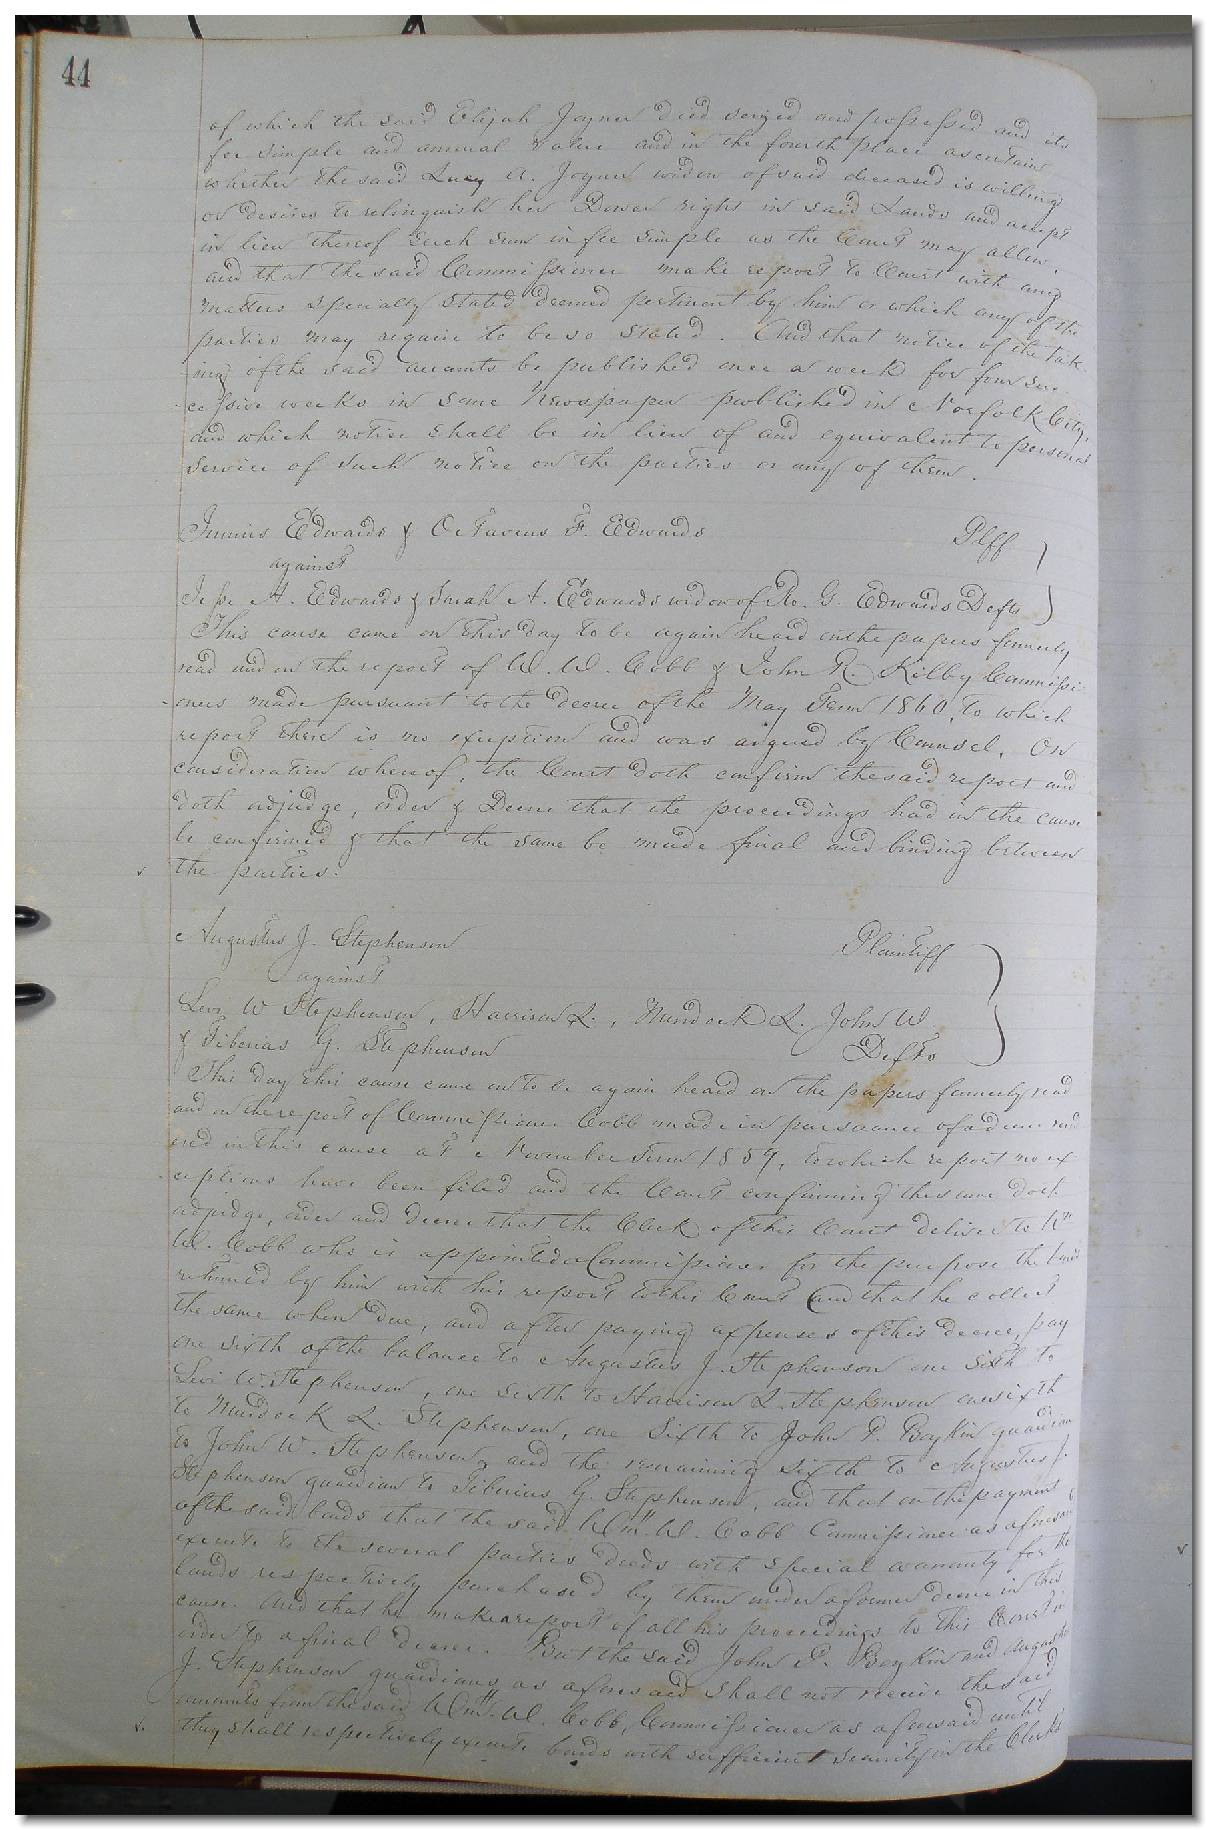 44
of which the said Elijah Joyner died seized and possessed and its
fee simple and annual value and in the fourth place ascertain
whether the said Lucy A. Joyner widow of said deceased is willing
or desires to relinquish her Dower right in said Lands and accept
in lieu thereof such sum in fee simple as the Court may allow.
and that the said Commissioner make report to Court with any
matters specially stated deemed pertinent by him or which any of the
parties may require to be so stated. And that notice of the tak
ing of the said accounts be published once a week for four suc
cessive weeks in some Newspaper published in Norfolk City,
and which notice shall be in lieu of and equivalent to personal
service of such notice on the parties or any of them.
Junius Edwards & Octavius F. Edwards Plff
against
Jesse A. Edwards & Sarah A. Edwards widow of Ro. G. Edwards Defts
This cause came on this day to be again heard on the papers formerly
read and on the report of W. W. Cobb & John R. Kilby Commissi
oners made pursuant to the decree of the May Term 1860, to which
report there is no exception and was argued by Counsel. On
consideration whereof, the Court doth confirm the said report and
doth adjudge, order & Decree that the proceedings had in the cause
be confirmed & that the same be made final and binding between
the parties.
Augustus J. Stephenson Plaintiff
against
Levi W Stephenson, Harrison L., Murdock L. John W
& Tiberias G. Stephenson Defts
This day this cause came on to be again heard on the papers formerly read
and on the report of Commissioner Cobb made in pursuance of a decree rend
ered in this cause at November Term 1859, to which report no ex
ceptions have been filed and the Court confirming the same doth
adjudge, order and decree that the Clerk of this Court deliver to Wm
W. Cobb who is appointed a Commissioner for the purpose the bonds
returned by him with his report to this Court and that he collect
the same when due, and after paying expenses of this decree, pay
one sixth of the balance to Augustus J. Stephenson one sixth to
Levi W. Stephenson, one sixth to Harrison L. Stephenson one sixth
to Murdock L. Stephenson, one sixth to John P. Boykin guardian
to John W. Stephenson, and the remaining sixth to Augustus J.
Stephenson guardian to Tiberius G. Stephenson, and that on the payment
of the said bonds that the said Wm. W. Cobb Commissioner as aforesaid
execute to the several parties deeds with special warranty for the
lands respectively purchased by them under a former decree in this
cause. And that he make a report of all his proceedings to this Court in
order to a final decree. But the said John P. Boykin and Augustus
J. Stephenson guardians as aforesaid shall not receive the said
amounts from the said Wm. W. Cobb, Commissioner as aforesaid until
they shall respectively execute bonds with sufficient security in the Clerks